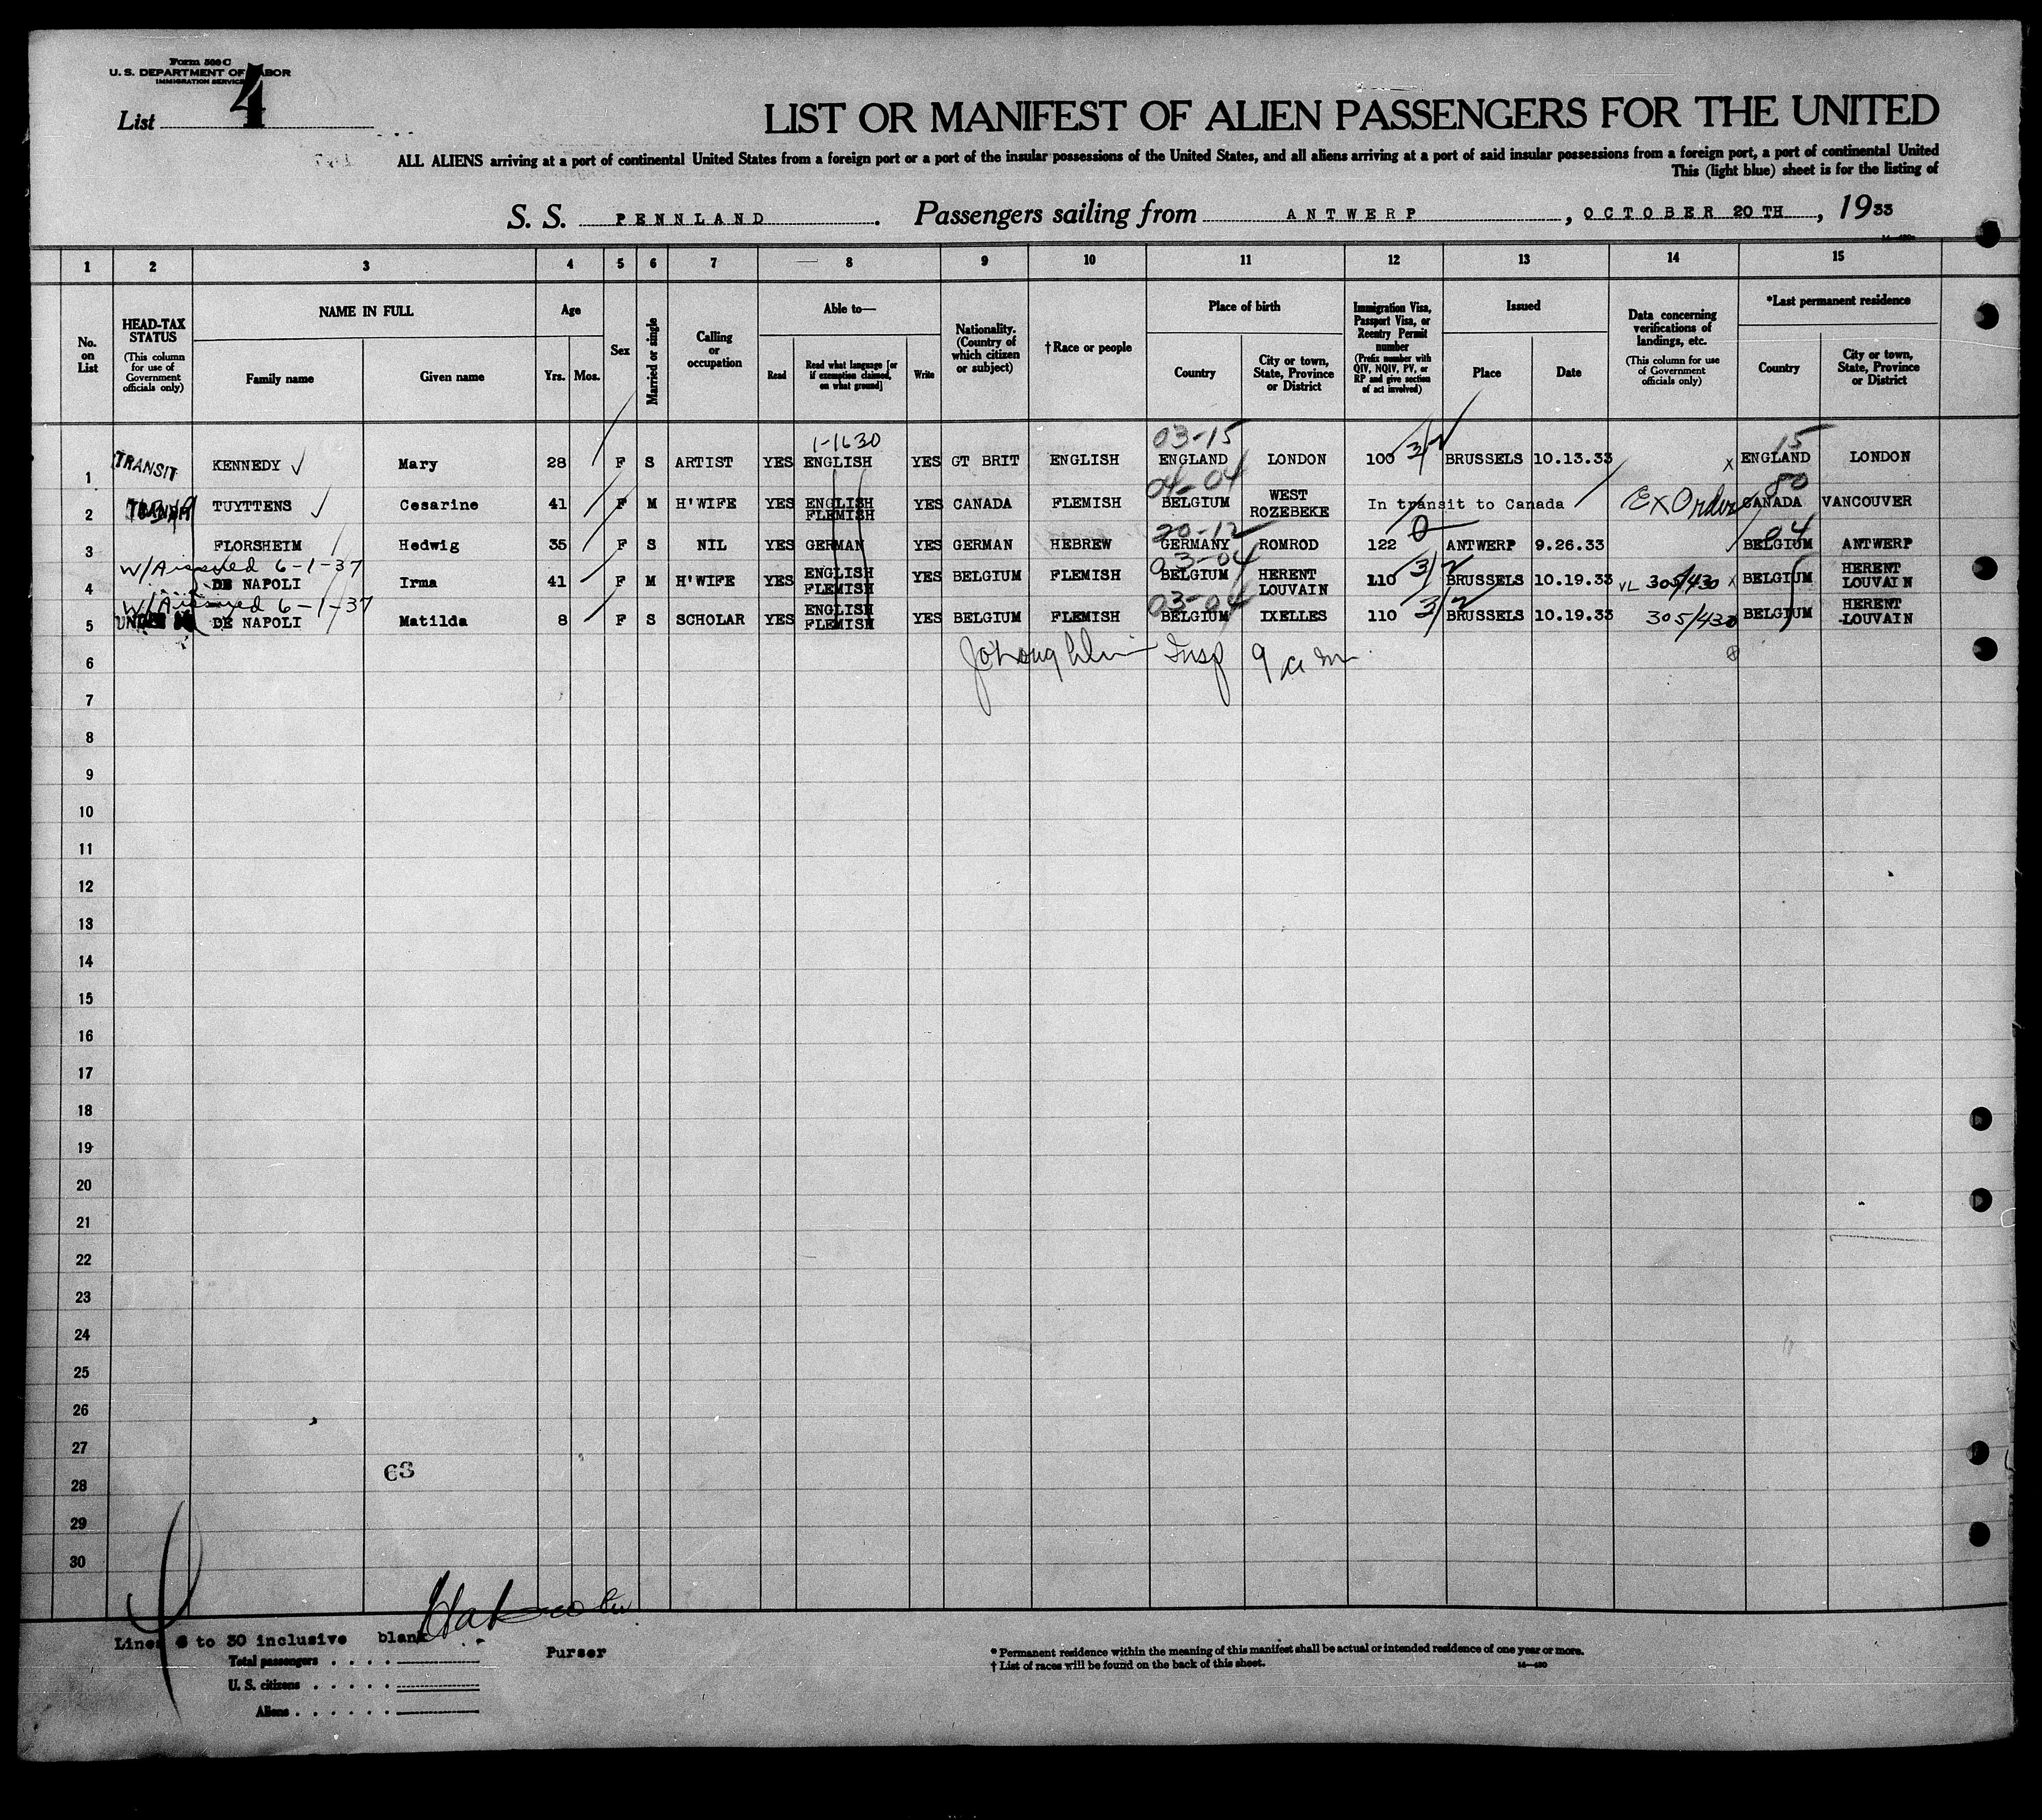 Form 500 C
U. S. DEPARTMENT OF LABOR
IMMIGRATION SERVICE
List 4
LIST OR MANIFEST OF ALIEN PASSENGERS FOR THE UNITED
ALL ALIENS arriving at a port of continental United States from a foreign port or a port of the insular possessions of the United States, and all aliens arriving at a port of said insular possessions from a foreign port, a port of continental United
This (light blue) sheet is for the listing of
S. S. PENNLAND. Passengers sailing from ANTWERP, OCTOBER 20 TH, 1933
1 2 3 4 5 6 7 8 9 10 11 12 13 14 15
No. on List
HEAD-TAX STATUS
(This column for use of Government officials only)
NAME IN FULL
Family name
Given name
Age
Yrs. Mos.
Sex
Married or single
Calling or occupation
Able to—
Read
Read what language [or if exemption claimed, on what ground]
Write
Nationality. (Country of which citizen or subject)
† Race or people
Place of birth
Country
City or town, State, Province or District
Immigration Visa, Passport Visa, or Reentry Permit number
(Prefix number with QIV, NQIV, PV, or RP and give section of act involved)
Issued
Place
Date
Data concerning verifications of landings, etc.
(This column for use of Government officials only)
*Last permanent residence
Country
City or town, State, Province or District
1-1630 03-15 3/2 15
1 TRANSIT KENNEDY Mary 28 F S ARTIST YES ENGLISH YES GT BRIT ENGLISH ENGLAND LONDON 100 BRUSSELS 10.13.33 x ENGLAND LONDON
04-04 80
2 TUYTTENS Cesarine 41 F M H'WIFE YES ENGLISH FLEMISH YES CANADA FLEMISH BELGIUM WEST ROZEBEKE In transit to Canada Ex Order CANADA VANCOUVER
20-12 0 04
3 FLORSHEIM Hedwig 35 F S NIL YES GERMAN YES GERMAN HEBREW GERMANY ROMROD 122 ANTWERP 9.26.33 BELGIUM ANTWERP
6-1-37 03-04 3/2
4 DE NAPOLI Irma 41 F M H'WIFE YES ENGLISH FLEMISH YES BELGIUM FLEMISH BELGIUM HERENT LOUVAIN 110 BRUSSELS 10.19.33 VL 305/430 x BELGIUM HERENT LOUVAIN
6-1-37 03-04 3/2
5 UNDER DE NAPOLI Matilda 8 F S SCHOLAR YES ENGLISH FLEMISH YES BELGIUM FLEMISH BELGIUM IXELLES 110 BRUSSELS 10.19.33 305/430 BELGIUM HERENT LOUVAIN
6 Insp 9 am
7
8
9
10
11
12
13
14
15
16
17
18
19
20
21
22
23
24
25
26
27
63
28
29
30
Lines 6 to 30 inclusive blank
Purser
Total passengers
U. S. citizens
Aliens
* Permanent residence within the meaning of this manifest shall be actual or intended residence of one year or more.
† List of races will be found on the back of this sheet.
14—420